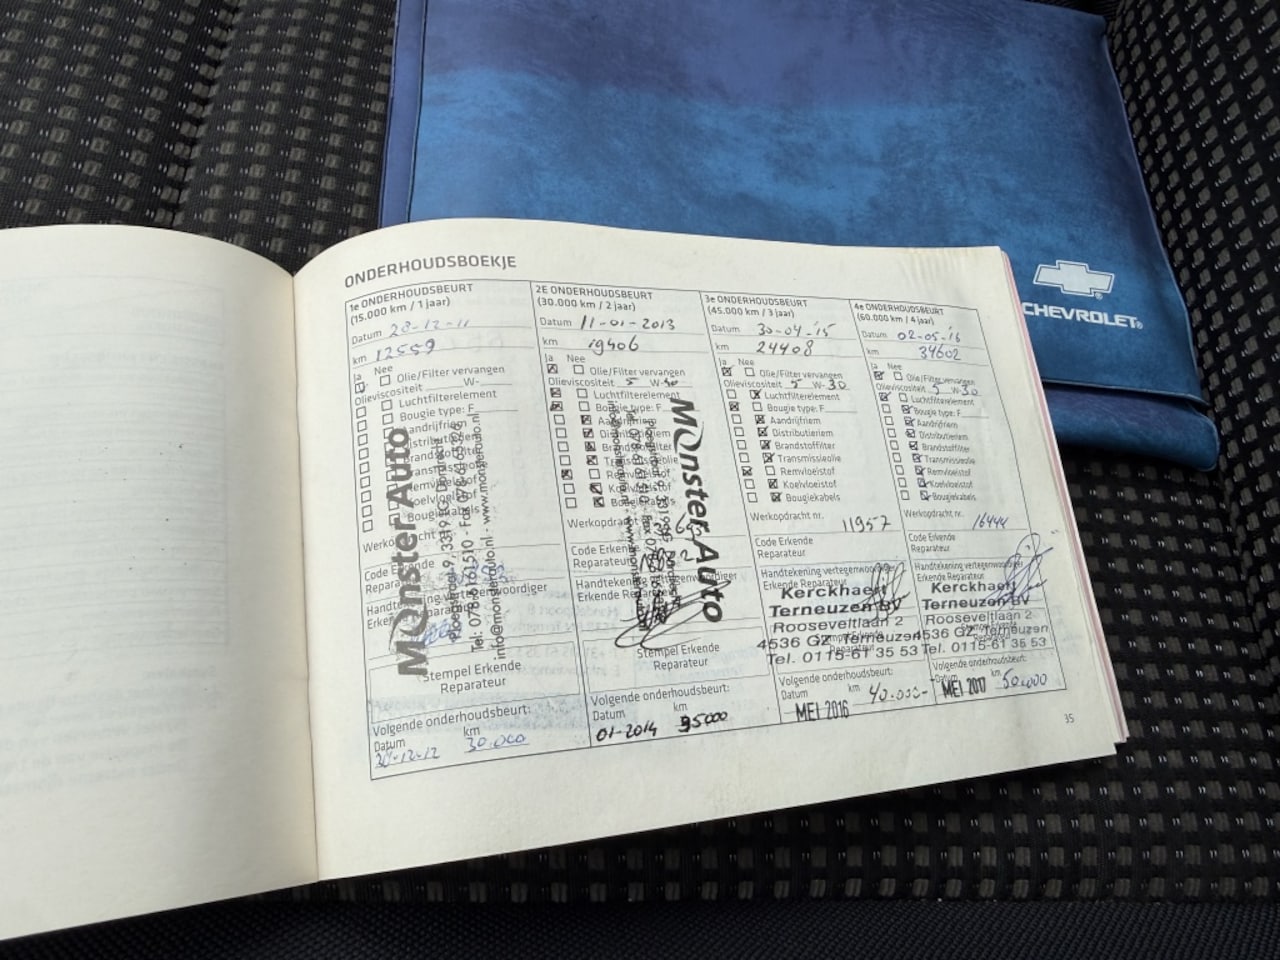 CHEVROLET
ONDERHOUDSBOEKJE
1e ONDERHOUDSBEURT
(15.000 km / 1 jaar)
Datum 20-12-11
km 12559
Ja Nee
Olie/Filter vervangen
Olieviscositeit W-
Luchtfilterelement
Bougie type: F
Aandrijfriem
Distributieriem
Brandstoffilter
Transmissieolie
Remvloeistof
Koelvloeistof
Bougiekabels
Code Erkende
Reparateur
Handtekening vertegenwoordiger
Monster Auto
info@monsterauto.nl - www.monsterauto.nl
Stempel Erkende
Reparateur
Volgende onderhoudsbeurt:
Datum km
20-12-12 30.000
2E ONDERHOUDSBEURT
(30.000 km / 2 jaar)
Datum 11-01-2013
km 19406
Ja Nee
Olie/Filter vervangen
Olieviscositeit 5 W-30
Luchtfilterelement
Bougie type: F
Aandrijfriem
Distributieriem
Brandstoffilter
Transmissieolie
Remvloeistof
Koelvloeistof
Bougiekabels
Werkopdracht nr.
Code Erkende
Reparateur
Handtekening vertegenwoordiger
Erkende Reparateur
Monster Auto
Stempel Erkende
Reparateur
Volgende onderhoudsbeurt:
Datum km
01-2014 35000
3e ONDERHOUDSBEURT
(45.000 km / 3 jaar)
Datum 30-04-'15
km 24408
Ja Nee
Olie/Filter vervangen
Olieviscositeit 5 W-30
Luchtfilterelement
Bougie type: F
Aandrijfriem
Distributieriem
Brandstoffilter
Transmissieolie
Remvloeistof
Koelvloeistof
Bougiekabels
Werkopdracht nr. 11957
Code Erkende
Reparateur
Handtekening vertegenwoordiger
Erkende Reparateur
Kerckhaert
Terneuzen BV
Rooseveltlaan 2
4536 GZ Terneuzen
Tel. 0115-61 35 53
Volgende onderhoudsbeurt:
Datum km 40.000-
MEI 2016
4e ONDERHOUDSBEURT
(60.000 km / 4 jaar)
Datum 02-05-'16
km 34602
Ja Nee
Olie/Filter vervangen
Olieviscositeit 5 W-30
Luchtfilterelement
Bougie type: F
Aandrijfriem
Distributieriem
Brandstoffilter
Transmissieolie
Remvloeistof
Koelvloeistof
Bougiekabels
Werkopdracht nr. 16444
Code Erkende
Reparateur
Handtekening vertegenwoordiger
Erkende Reparateur
Kerckhaert
Terneuzen BV
Rooseveltlaan 2
4536 GZ Terneuzen
Tel. 0115-61 35 53
Volgende onderhoudsbeurt:
Datum km 50.000
MEI 2017
35